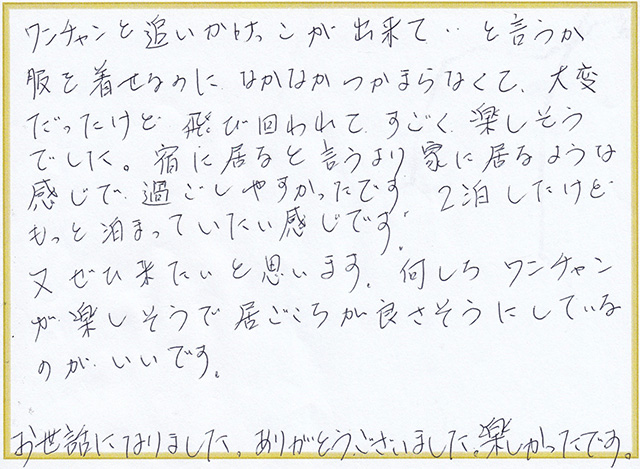 ワンチャンと追いかけっこが出来て‥と言うか
服を着せるのになかなかつかまらなくて、大変
だったけど飛び回われてすごく楽しそう
でした。宿に居ると言うより家に居るような
感じで過ごしやすかったです 2泊したけど
もっと泊まっていたい感じです。
又ぜひ来たいと思います。何しろワンチャン
が楽しそうで居ごころが良さそうにしている
のがいいです。
お世話になりました。ありがとうございました。楽しかったです。